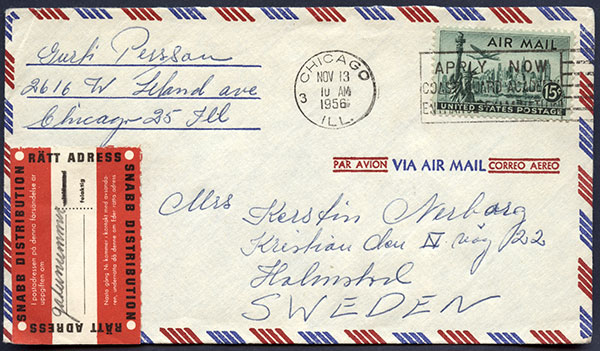 Persson
2616 W Leland ave
Chicago 25 Ill
CHICAGO
NOV 13
10 AM
1956
3
ILL.
AIR MAIL
APPLY NOW
COAST GUARD ACADEMY
15¢
UNITED STATES POSTAGE
PAR AVION VIA AIR MAIL CORREO AEREO
Mrs Kerstin Nerborg
Kristian den IV väg 22
Halmstad
SWEDEN
RÄTT ADRESS
SNABB DISTRIBUTION
SNABB DISTRIBUTION
RÄTT ADRESS
I postadressen på denna försändelse är
uppgiften om
gatunummer
felaktig
Nästa gång Ni kommer i kontakt med avsända-
ren, underrätta då denne om Eder rätta adress